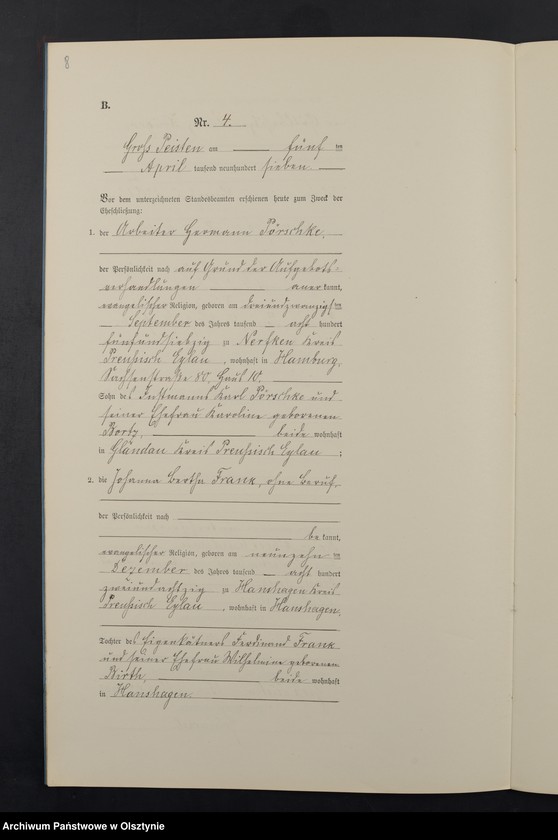 8
B.
Nr. 4.
Gross Peisten am fünf ten
April tausend neunhundert sieben.
Vor dem unterzeichneten Standesbeamten erschienen heute zum Zweck der
Eheschließung:
1. der Arbeiter Hermann Pörschke,
der Persönlichkeit nach auf Grund der Aufgebots-
verhandlungen aner kannt,
evangelischer Religion, geboren am dreiundzwanzigsten
September des Jahres tausend acht hundert
fünfundsiebzig zu Nerfken Kreis
Preußisch Eylau, wohnhaft in Hamburg,
Sachsenstraße 80, Haus 10.
Sohn des Instmanns Karl Pörschke und
seiner Ehefrau Karoline geborenen
Bortz, beide wohnhaft
in Glandau Kreis Preußisch Eylau ;
2. die Johanna Bertha Frank, ohne Beruf,
der Persönlichkeit nach
be kannt,
evangelischer Religion, geboren am neunzehn ten
Dezember des Jahres tausend acht hundert
zweiundachtzig zu Hanshagen Kreis
Preußisch Eylau, wohnhaft in Hanshagen,
Tochter des Eigenkätners Ferdinand Frank
und seiner Ehefrau Wilhelmine geborenen
Wirth, beide wohnhaft
in Hanshagen.
Archiwum Państwowe w Olsztynie